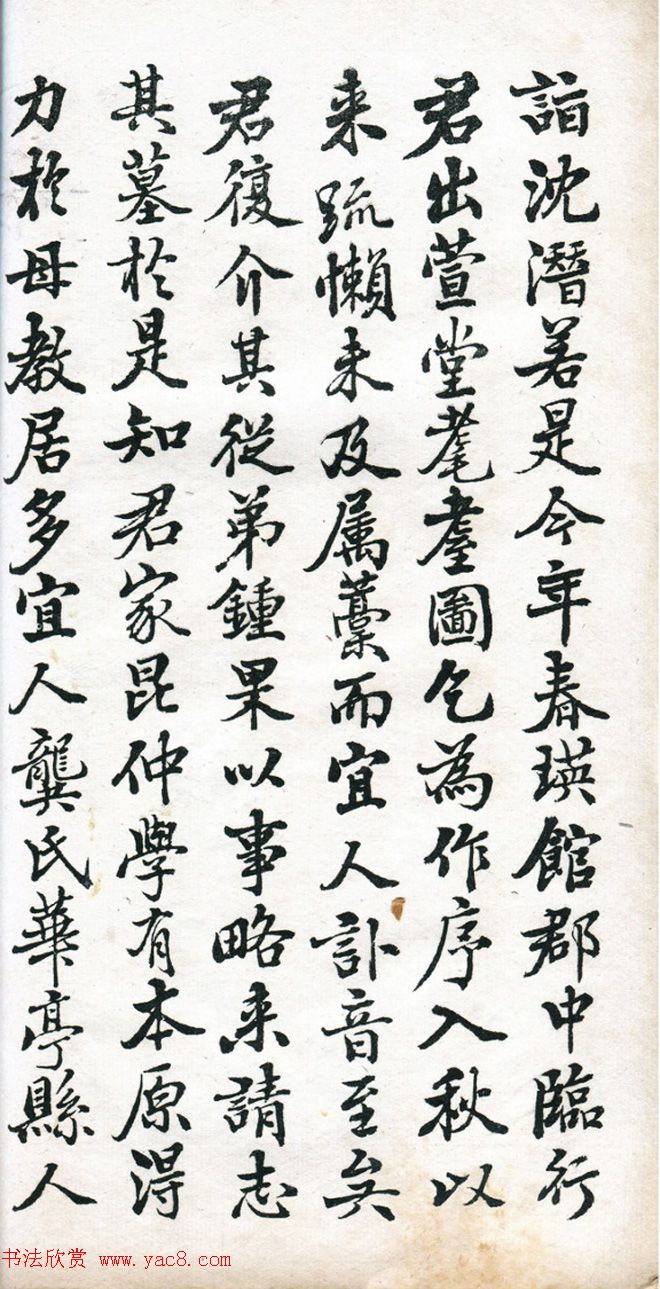 詣沈潛若是今年春瑛館郡中臨行
君出萱堂耄耋圖乞為作序入秋以
来疏懶未及属藳而宜人訃音至矣
君復介其從弟鍾果以事略来請志
其墓於是知君家昆仲學有本原淂
力於母教居多宜人龔氏華亭縣人
书法欣赏 www.yac8.com